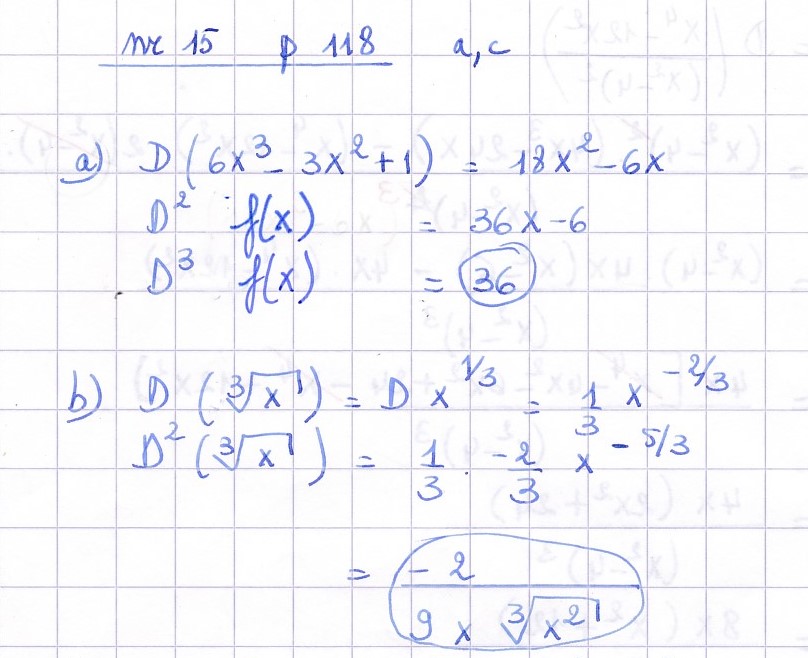 nr 15 p 118 a, c
a) D (6x³ - 3x² + 1) = 18x² - 6x
D² f(x) = 36x - 6
D³ f(x) = 36
b) D (∛x) = D x^{1/3} = 1/3 x^{-2/3}
D² (∛x) = 1/3 · -2/3 x^{-5/3}
= -2 / 9x ∛x²